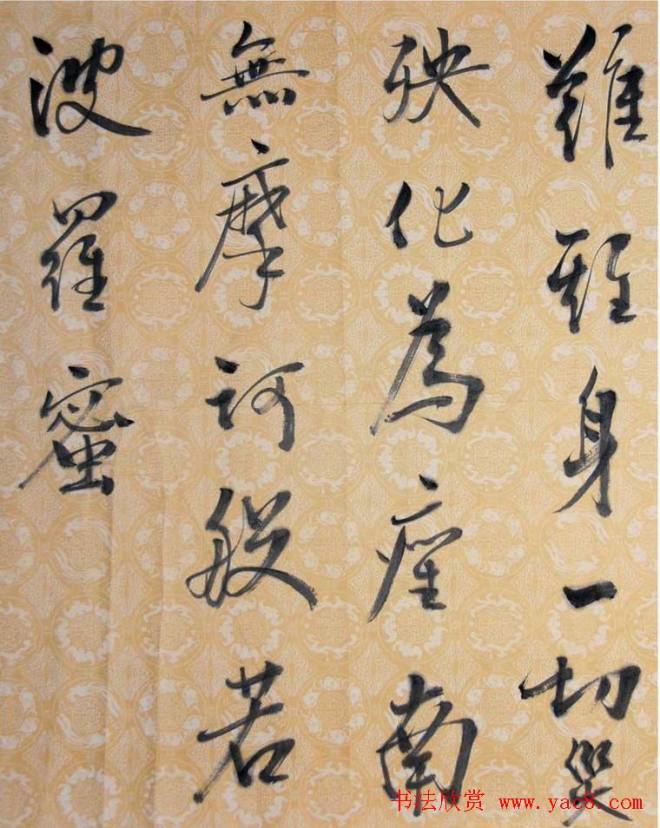 難離身一切災
殃化為塵南
無摩訶般若
波羅蜜
书法欣赏 www.yac8.com